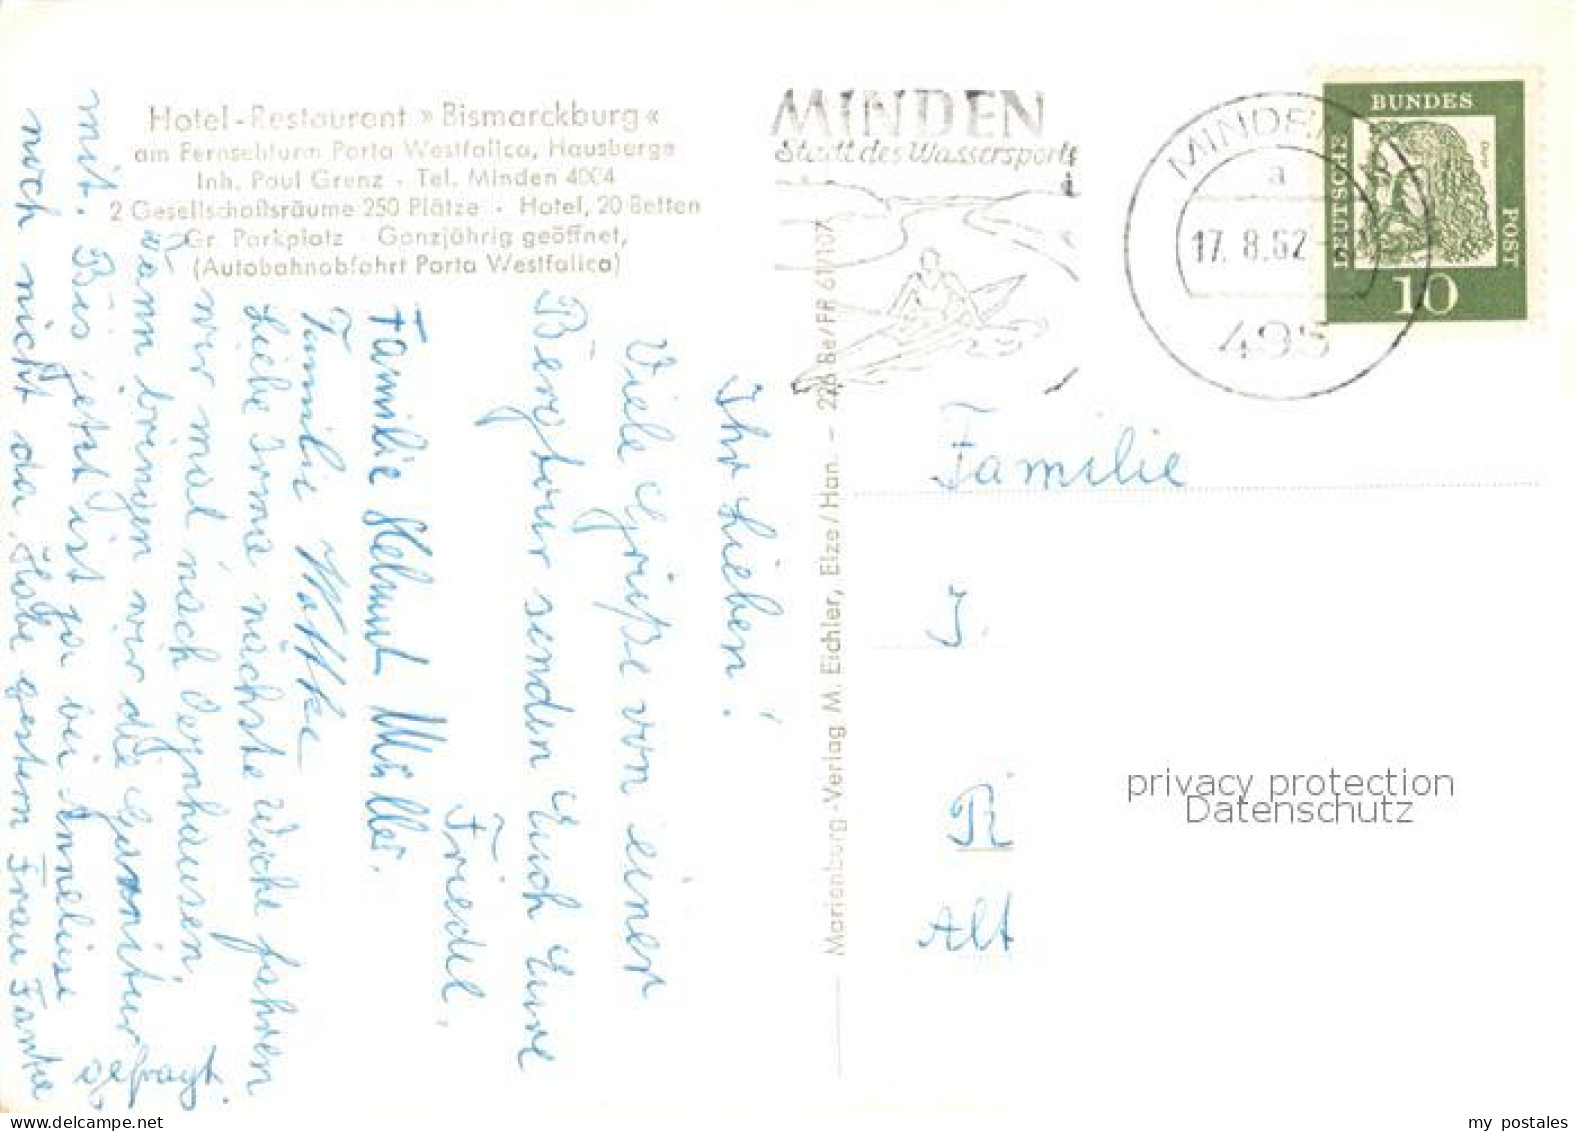 Hotel-Restaurant » Bismarckburg «
am Fernsehturm Porta Westfalica, Hausberge
Inh. Paul Grenz · Tel. Minden 4004
2 Gesellschaftsräume 250 Plätze · Hotel, 20 Betten
Gr. Parkplatz · Ganzjährig geöffnet,
(Autobahnabfahrt Porta Westfalica)
MINDEN
Stadt des Wassersports
MINDEN
a
17. 8.62
495
DEUTSCHE
BUNDES
POST
10
Ihr Lieben!
Viele Grüße von einer
Bergtour senden Euch Eure
Friedel.
Familie Helmut Müller.
Familie
Liebe Irma nächste Woche fahren
wir mal nach Oeynhausen,
dann bringen wir die Garnitur
mit. Bis jetzt ist ja bei Anneliese
noch nicht da. Habe gestern Frau Tanke
gefragt.
Marienburg-Verlag M. Eichler, Elze/Han. – 226 Be/FR 61/107
Familie
J.
R
Alt
privacy protection
Datenschutz
www.delcampe.net
my_postales